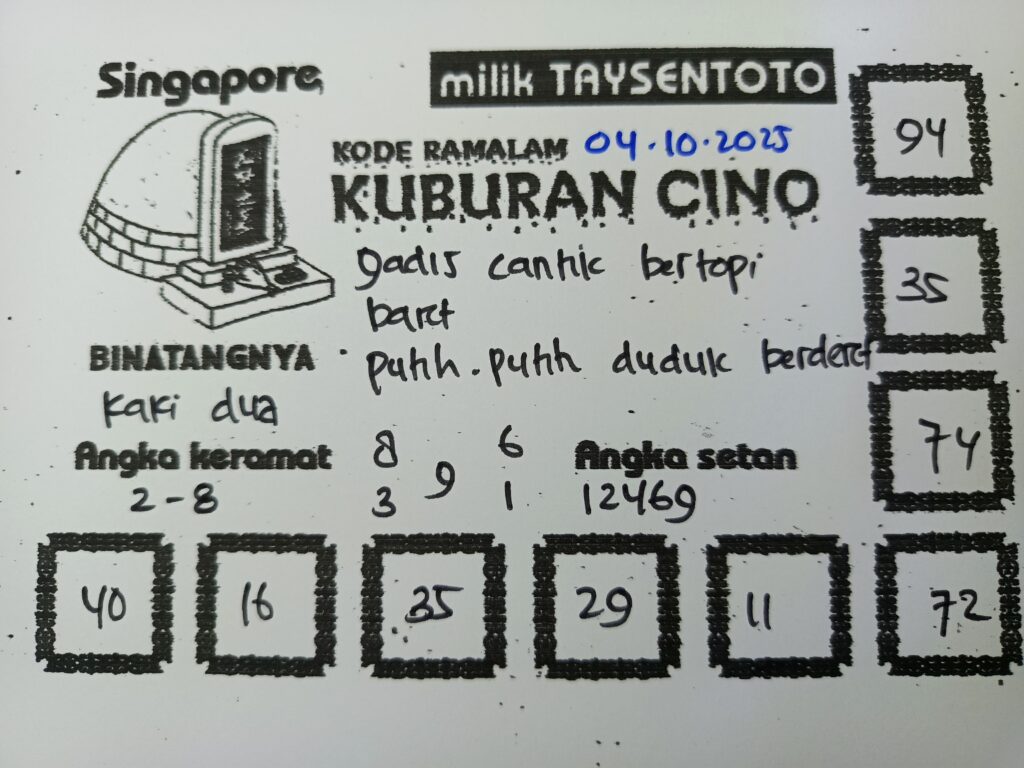 Singapore
milik TAYSENTOTO
KODE RAMALAM 04.10.2025
KUBURAN CINO
gadis cantik bertopi
baret
putih.putih duduk berderet
BINATANGNYA
kaki dua
Angka keramat
2-8
8 6
9
3 1
Angka setan
12469
94
35
74
40 16 35 29 11 72